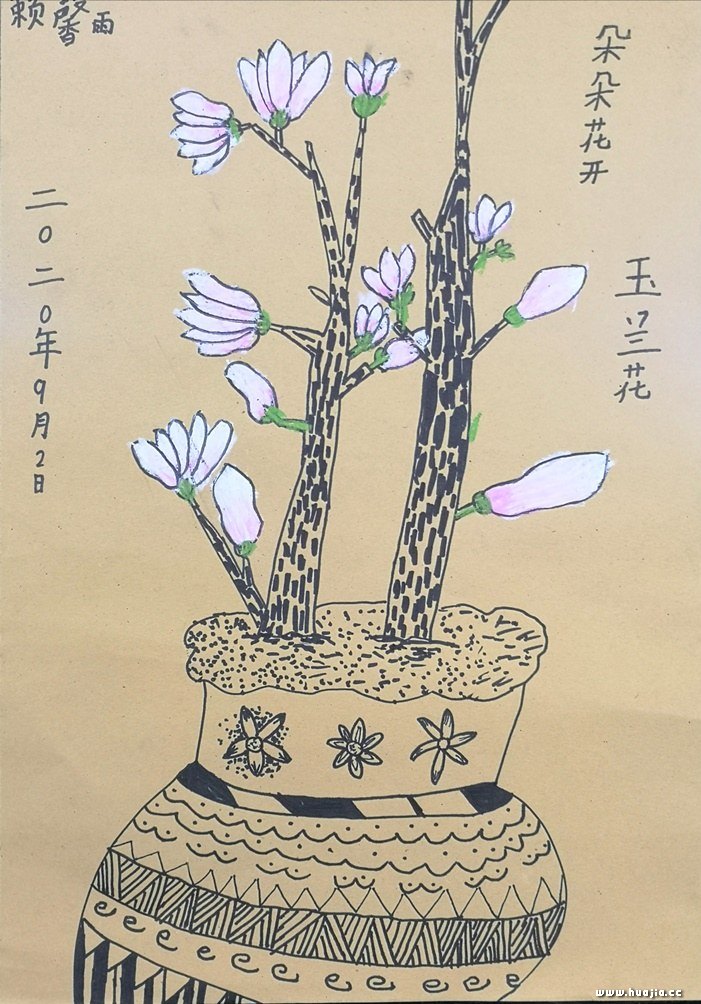 赖馨雨
朵朵花开
玉兰花
二0二0年9月2日
www.huajia.cc